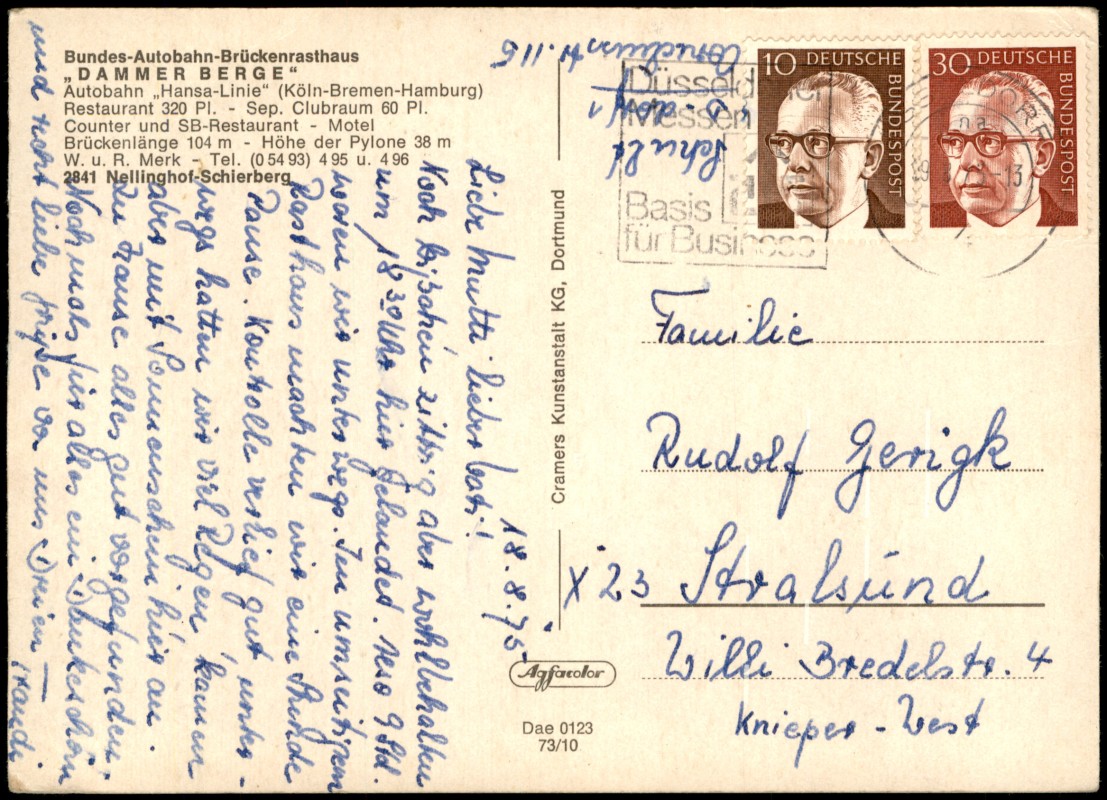 Bundes-Autobahn-Brückenrasthaus
„DAMMER BERGE“
Autobahn „Hansa-Linie“ (Köln-Bremen-Hamburg)
Restaurant 320 Pl. - Sep. Clubraum 60 Pl.
Counter und SB-Restaurant - Motel
Brückenlänge 104 m - Höhe der Pylone 38 m
W. u. R. Merk - Tel. (0 54 93) 4 95 u. 4 96
2841 Nellinghof-Schierberg
18.8.75
Liebe Mutti lieber Vati!
Noch bißchen zittrig aber wohlbehalten
um 18 30 Uhr hier gelandet. 9 Std.
waren wir unterwegs. Im umseitigen
Rasthaus machten wir eine Stunde
Pause. Kontrolle verlief gut unter-
wegs hatten wir viel Regen, kamen
aber mit Sonnenschein hier an.
Zu Hause alles gut vorgefunden.
Nochmals für alles ein Dankeschön
und recht liebe Grüße von uns Dreien –
Traudi
Cramers Kunstanstalt KG, Dortmund
Agfacolor
Dae 0123
73/10
Schulz
4 Düsseldorf 1
115
Düsseldorfer
Messen
Basis
für Business
10 DEUTSCHE
BUNDESPOST
30 DEUTSCHE
BUNDESPOST
na
-13
Familie
Rudolf Gerigk
X 23 Stralsund
Willi Bredelstr. 4
Knieper-West